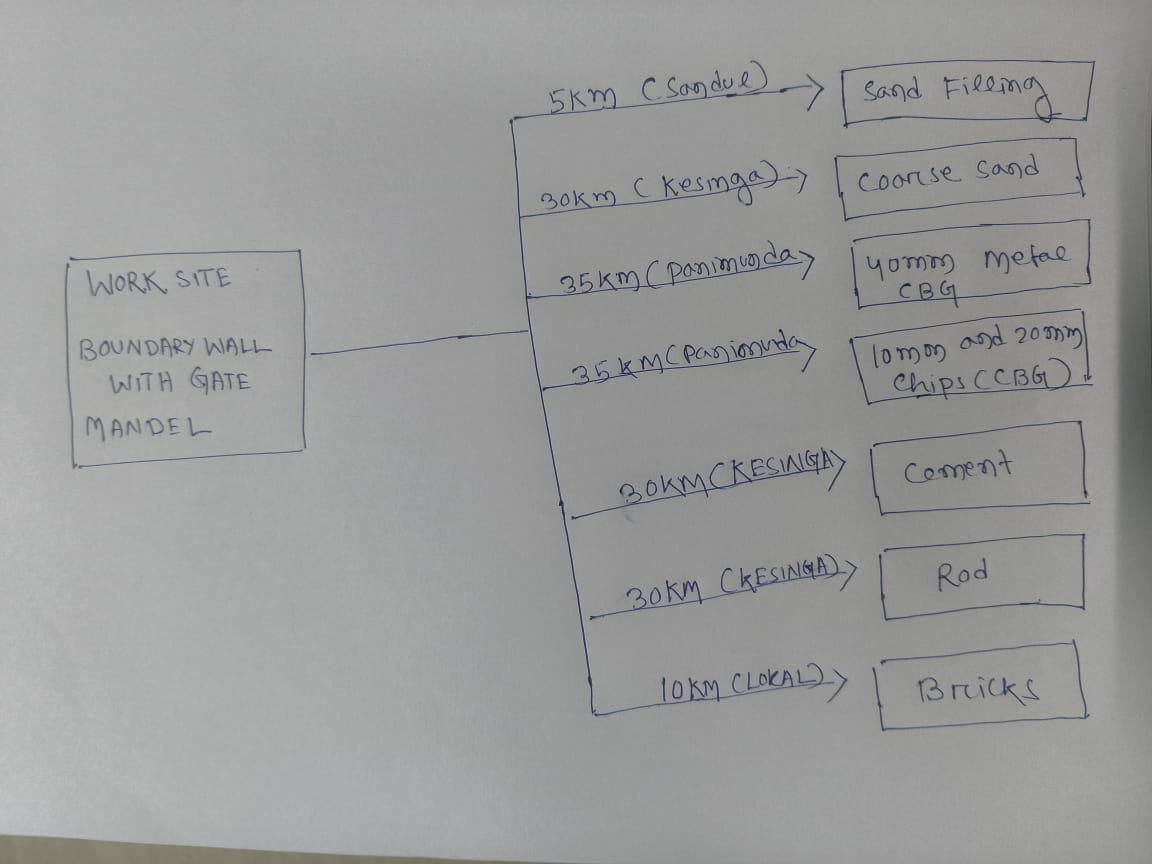 WORK SITE
BOUNDARY WALL
WITH GATE
MANDEL
5KM (Sandul)
Sand Filling
30KM (Kesinga)
Coarse Sand
35KM (Panimunda
40mm Metal
CBG
35KM (Panimunda
10mm and 20mm
Chips (CBG)
30KM (KESINGA)
Cement
30KM (KESINGA)
Rod
10KM (LOKAL)
Bricks